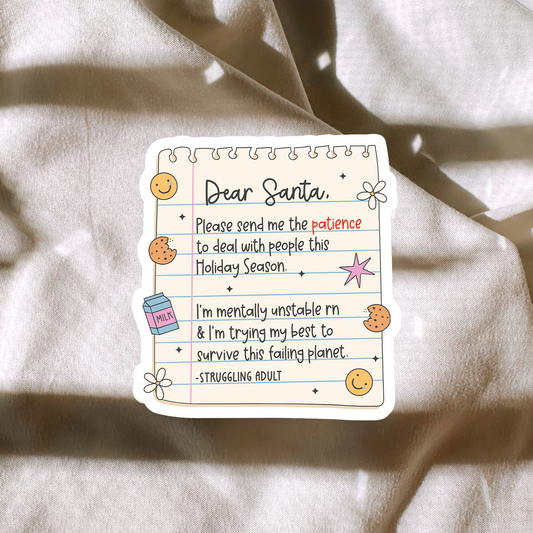 Dear Santa,
Please send me the patience
to deal with people this
Holiday Season.
I'm mentally unstable rn
& I'm trying my best to
survive this failing planet.
-STRUGGLING ADULT
MILK